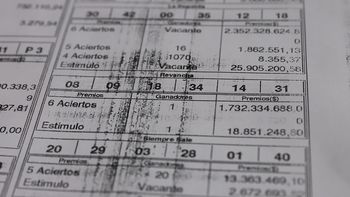 La Segunda
30 42 00 35 12 18
Premios Ganadores Premios($)
6 Aciertos Vacante 2.352.328.624,8
0
5 Aciertos 16 1.862.551,13
4 Aciertos 1070 8.355,37
Estimulo Vacante 25.905.200,58
Revancha
08 09 18 34 14 31
Premios Ganadores Premios($)
6 Aciertos 1 1.732.334.688,0
0
Estimulo 1 18.851.248,80
Siempre Sale
20 29 03 28 01 40
Premios Ganadores Premios($)
5 Aciertos 20 13.363.469,10
Estimulo Vacante 2.672.693,82
11 P 3
00.338,3
9
327,81
0,00